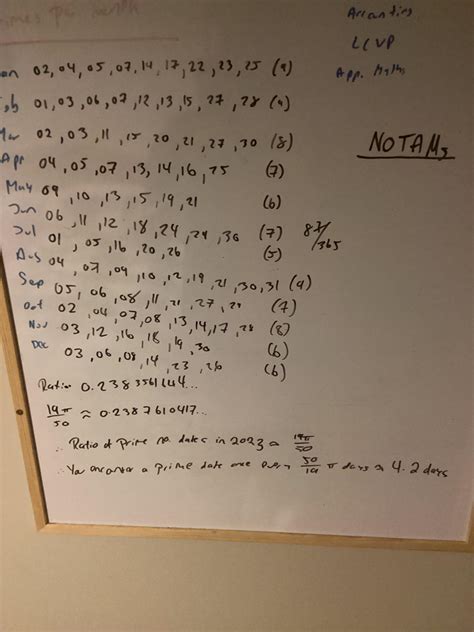 imes per month
Accounting
LCVP
App. Maths
NOTAMs
an 02, 04, 05, 07, 14, 17, 22, 23, 25 (9)
eb 01, 03, 06, 07, 12, 13, 15, 27, 28 (9)
Mar 02, 03, 11, 15, 20, 21, 27, 30 (8)
Apr 04, 05, 07, 13, 14, 16, 25 (7)
May 09, 10, 13, 15, 19, 21 (6)
Jun 06, 11, 12, 18, 24, 29, 30 (7) 87/365
Jul 01, 05, 16, 20, 26 (5)
Aug 04, 07, 09, 10, 12, 19, 21, 30, 31 (9)
Sep 05, 06, 08, 11, 21, 27, 29 (7)
Oct 02, 04, 07, 08, 13, 14, 17, 28 (8)
Nov 03, 12, 16, 18, 19, 30 (6)
Dec 03, 06, 08, 14, 23, 26 (6)
Ratio 0.238356164...
19π/50 ≈ 0.2387610417...
∴ Ratio of prime no. dates in 2023 ≈ 19π/50
∴ You encounter a prime date once every 50/19 π days ≈ 4.2 days